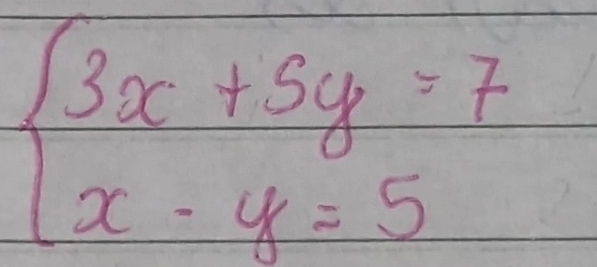 3x + 5y = 7
x - y = 5